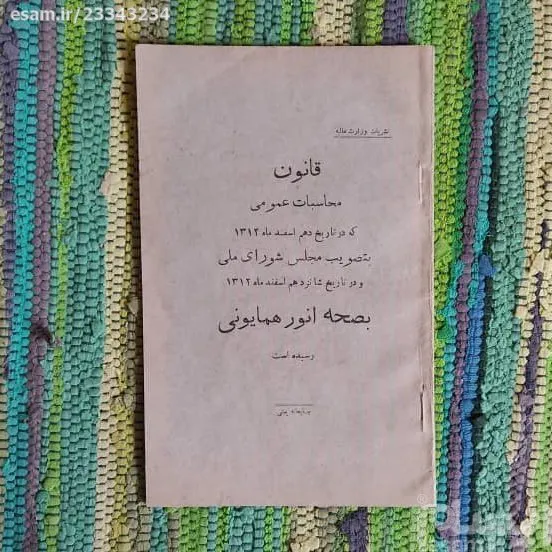 esam.ir/23343234
نشریات وزارت مالیه
قانون
محاسبات عمومی
که در تاریخ دهم اسفند ماه ۱۳۱۲
بتصویب مجلس شورای ملی
و در تاریخ شانزدهم اسفند ماه ۱۳۱۲
بصحه انور همایونی
رسیده است